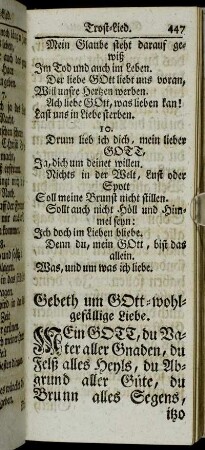 Trost-Lied. 447
Mein Glaube steht darauf ge-
wiß
Im Tod und auch im Leben.
Der liebe GOtt liebt uns voran,
Will unsre Hertzen werben.
Ach liebe GOtt, was lieben kan!
Last uns in Liebe sterben.
10.
Drum lieb ich dich, mein lieber
GOTT,
Ja, dich um deinet willen.
Nichts in der Welt, Lust oder
Spott
Soll meine Brunst nicht stillen.
Sollt auch nicht Höll und Him-
mel seyn:
Ich doch im Lieben bliebe.
Denn du, mein GOtt, bist das
allein.
Was, und um was ich liebe.
Gebeth um GOtt-wohl-
gefällige Liebe.
MEin GOTT, du Va-
ter aller Gnaden, du
Felß alles Heyls, du Ab-
grund aller Güte, du
Brunn alles Segens,
itzo